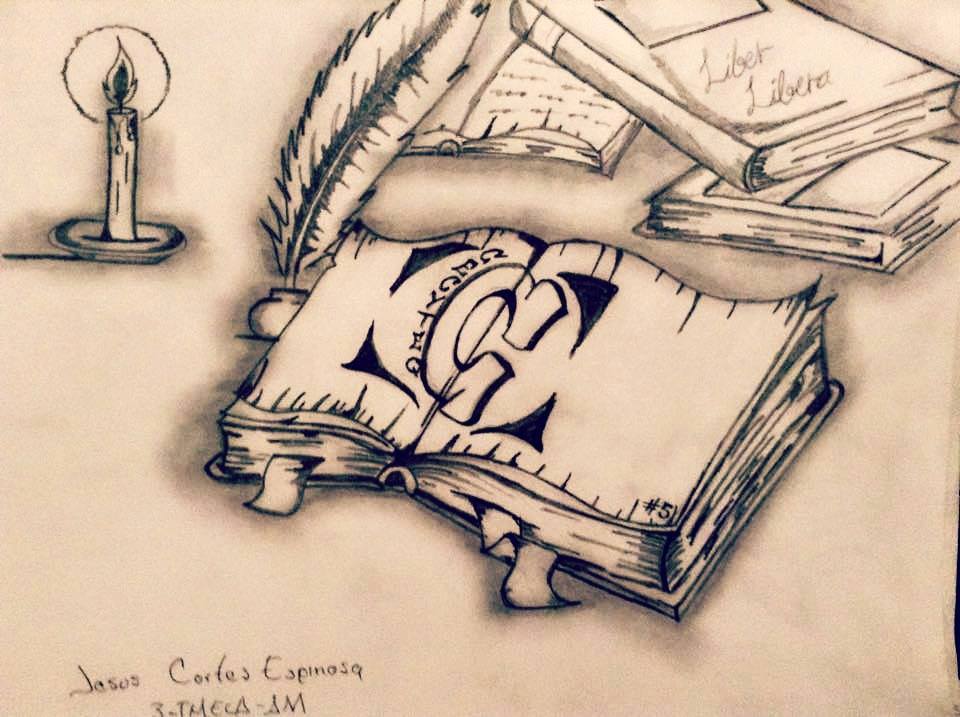 Liber
Libera
#5
Jesus Cortes Espinosa
3-TMECA-AM